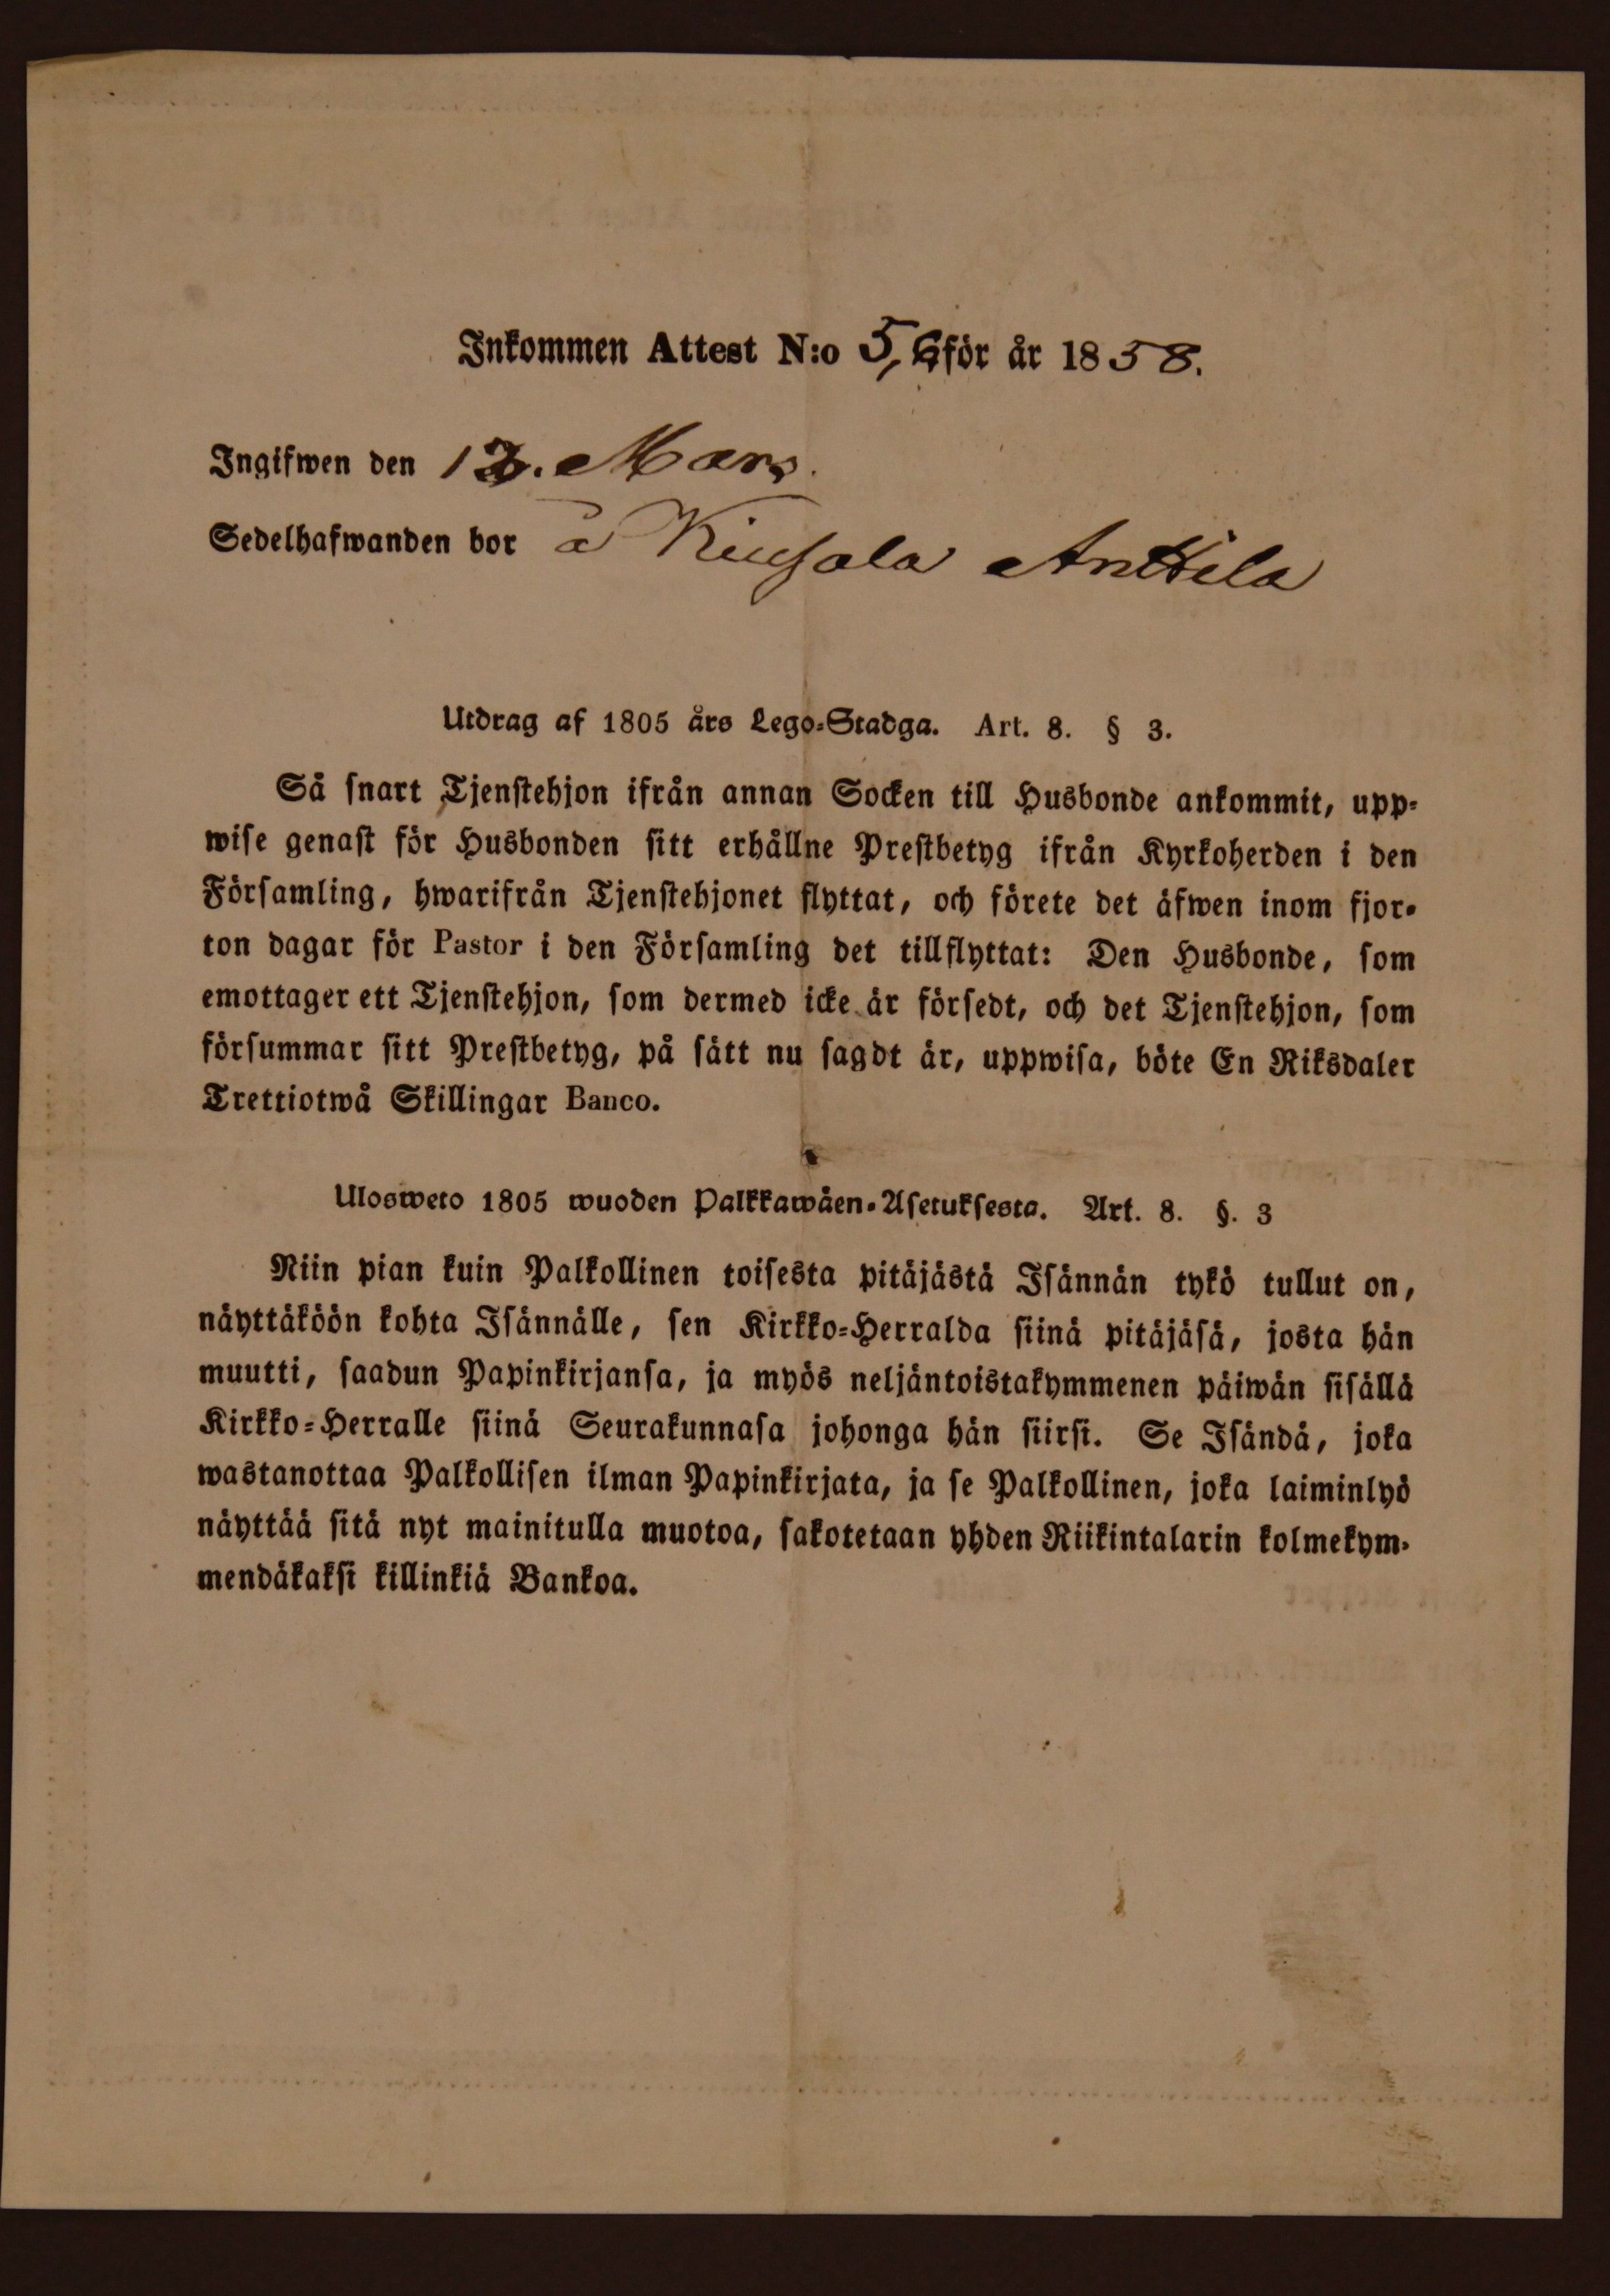 Inkommen Attest N:o 5,6 för år 1858.
Ingifwen den 13. Mars.
Sedelhafwanden bor å Anttila
Utdrag af 1805 års Lego-Stadga. Art. 8. § 3.
Så snart Tjenstehjon ifrån annan Socken till Husbonde ankommit, upp-
wise genast för Husbonden sitt erhållne Prestbetyg ifrån Kyrkoherden i den
Församling, hwarifrån Tjenstehjonet flyttat, och förete det äfwen inom fjor-
ton dagar för Pastor i den Församling det tillflyttat: Den Husbonde, som
emottager ett Tjenstehjon, som dermed icke är försedt, och det Tjenstehjon, som
försummar sitt Prestbetyg, på sätt nu sagdt är, uppwisa, böte En Riksdaler
Trettiotwå Skillingar Banco.
Ulosweto 1805 wuoden Palkkawäen-Asetuksesta. Art. 8. §. 3
Niin pian kuin Palkollinen toisesta pitäjästä Isännän tykö tullut on,
näyttäköön kohta Isännälle, sen Kirkko-Herralda siinä pitäjäsä, josta hän
muutti, saadun Papinkirjansa, ja myös neljäntoistakymmenen päiwän sisällä
Kirkko-Herralle siinä Seurakunnasa johonga hän siirsi. Se Isändä, joka
wastanottaa Palkollisen ilman Papinkirjata, ja se Palkollinen, joka laiminlyö
näyttää sitä nyt mainitulla muotoa, sakotetaan yhden Riikintalarin kolmekym-
mendäkaksi killinkiä Bankoa.